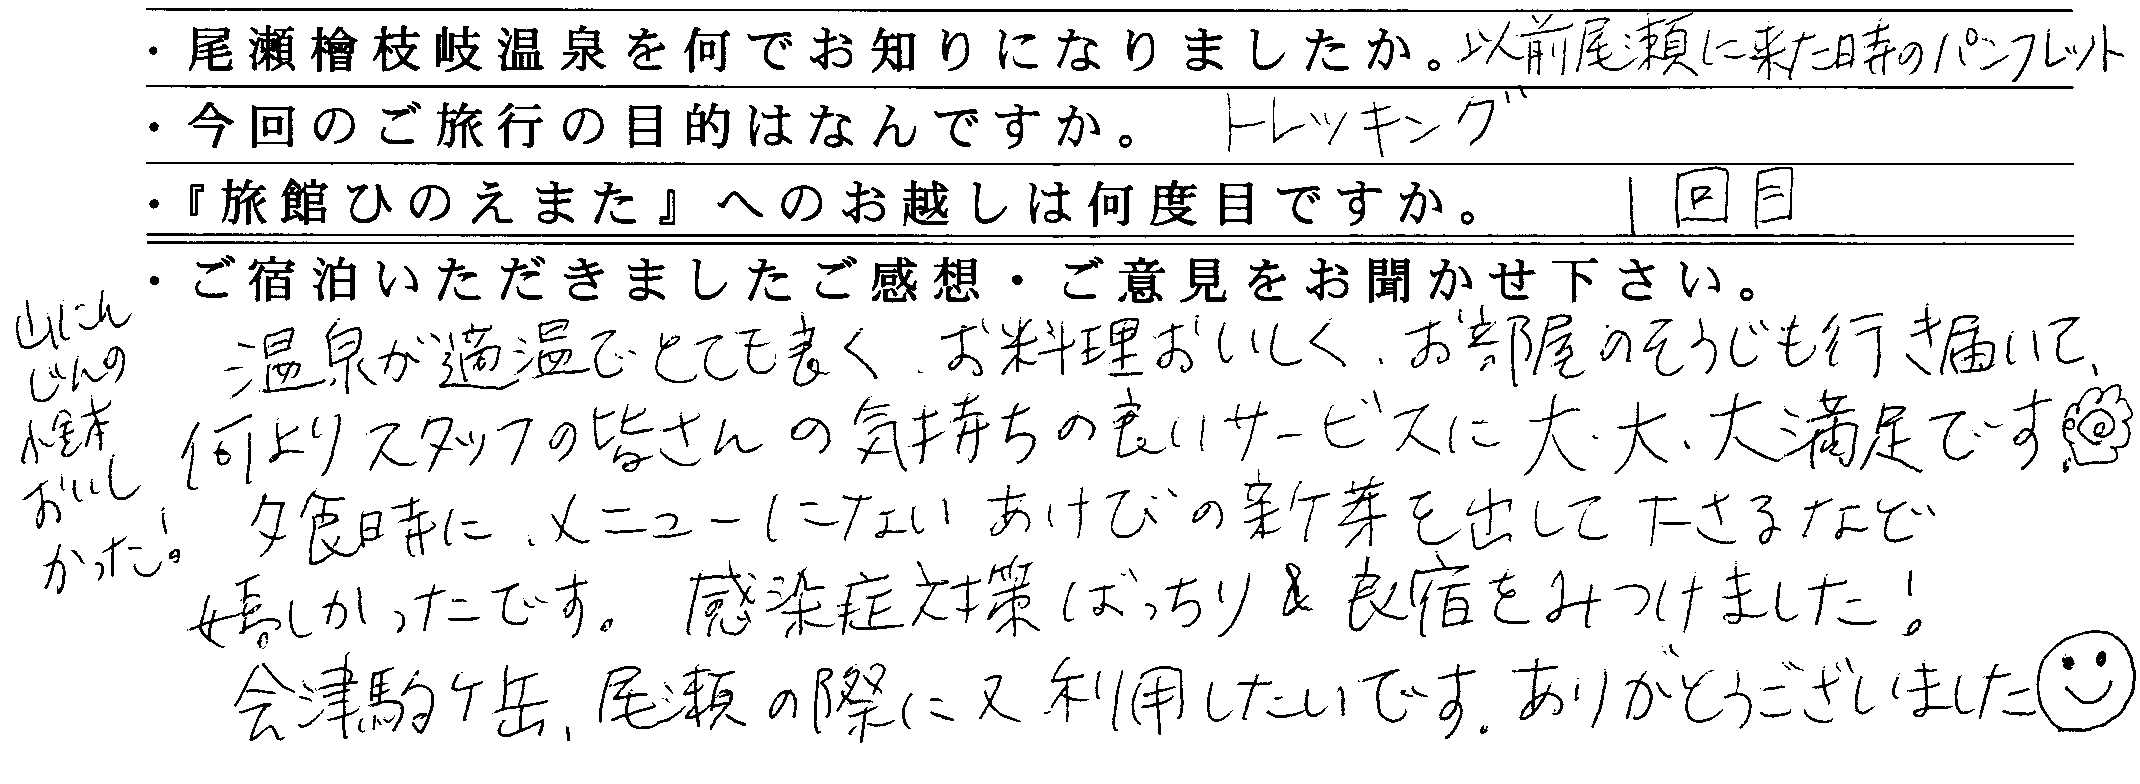 ・尾瀬檜枝岐温泉を何でお知りになりましたか。以前尾瀬に来た時のパンフレット
・今回のご旅行の目的はなんですか。 トレッキング
・『旅館ひのえまた』へのお越しは何度目ですか。 1回目
・ご宿泊いただきましたご感想・ご意見をお聞かせ下さい。
温泉が適温でとても良く、お料理おいしく、お部屋のそうじも行き届いて、
何よりスタッフの皆さんの気持ちの良いサービスに大、大、大満足です
夕食時に、メニューにないあけびの新芽を出して下さるなど
嬉しかったです。感染症対策ばっちり & 良宿をみつけました!
会津駒ケ岳、尾瀬の際に又利用したいです。ありがとうございました
山にん
じんの
おいし
かった!